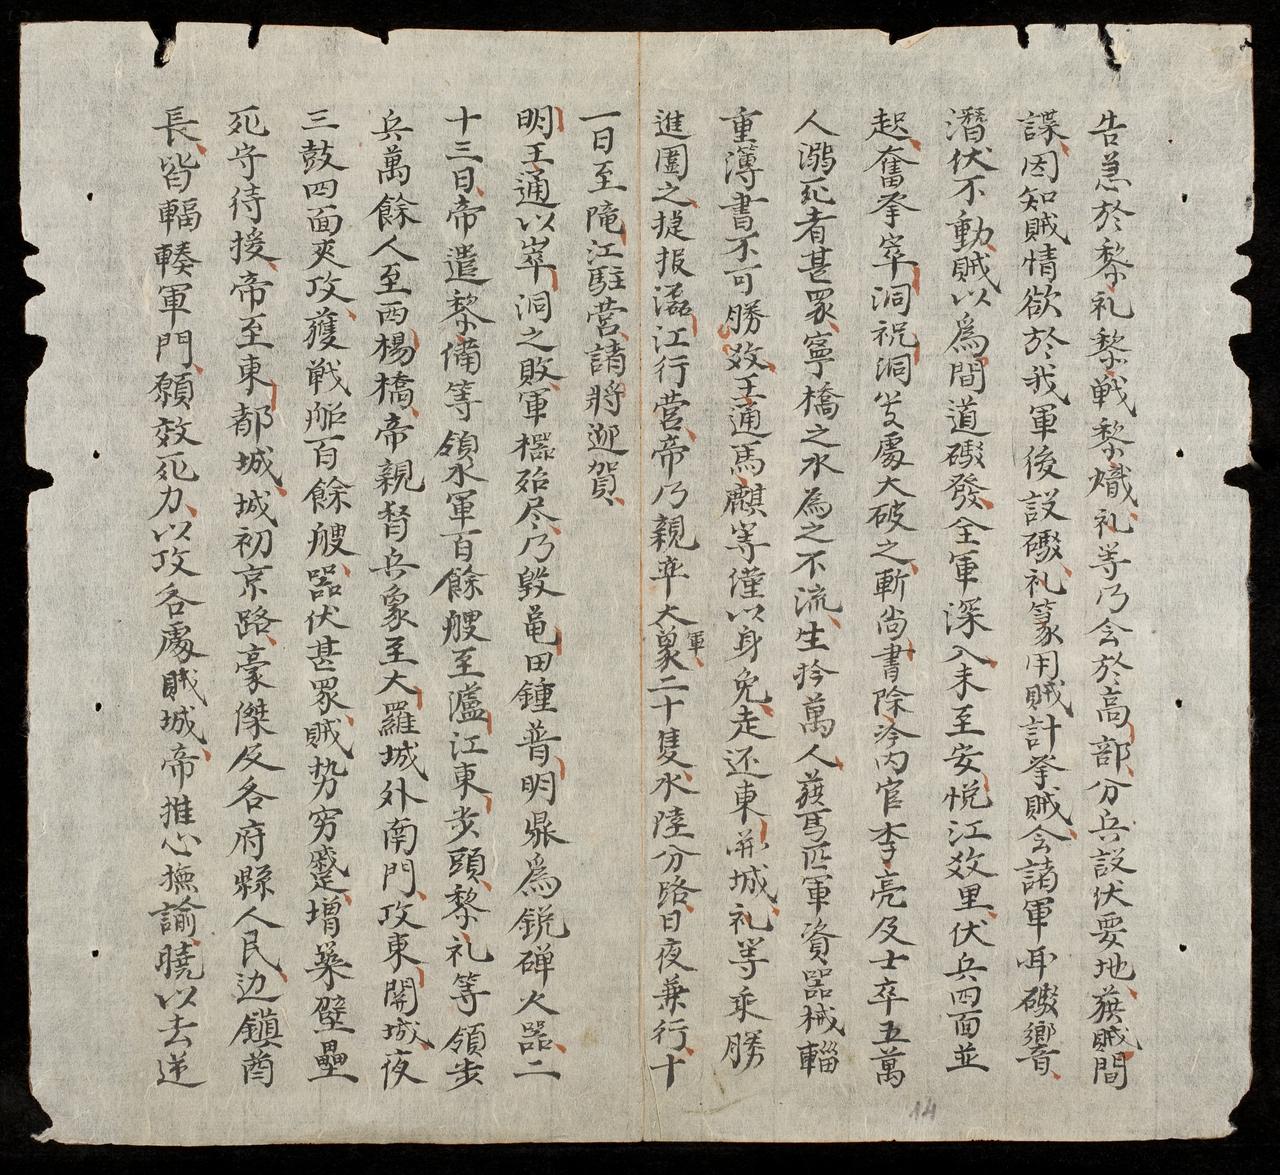 告急於黎礼黎戦黎熾礼等乃会於高部分兵設伏要地獲賊間
諜因知賊情欲於我軍後設礮礼篆用賊計拳賊会諸軍耳礮響
潛伏不動賊以為間道礮發全軍深入未至安悦江数里伏兵四面並
起奮拳崒洞祝洞処大破之斬尚書除冷内官李亮及士卒五萬
人溺死者甚眾寧橋之水為之不流生扵萬人獲馬匹軍資器械輜
重薄書不可勝数王通馬麒等僅以身免走还東関城礼等乘勝
進圍之捷报江行营帝乃親率大軍象二十隻水陸分路日夜兼行十
一日至淹江駐营諸将迎賀
明王通以崒洞之敗軍器殆尽乃毀黽田鍾普明鼎為銃磾火器二
十三日帝遣黎備等領水軍百餘艘至瀘江東步頭黎礼等領步
兵萬餘人至西楊橋帝親督兵象至大羅城外南門攻東関城夜
三鼓四面夾攻獲戦船百餘艘器伏甚眾賊势穷蹙增築壁壘
死守待援帝至東都城城初京路豪傑及各府縣人民边鎮酋
長皆輻輳軍門願效死力以攻各處賊城帝推心撫諭曉以去逆